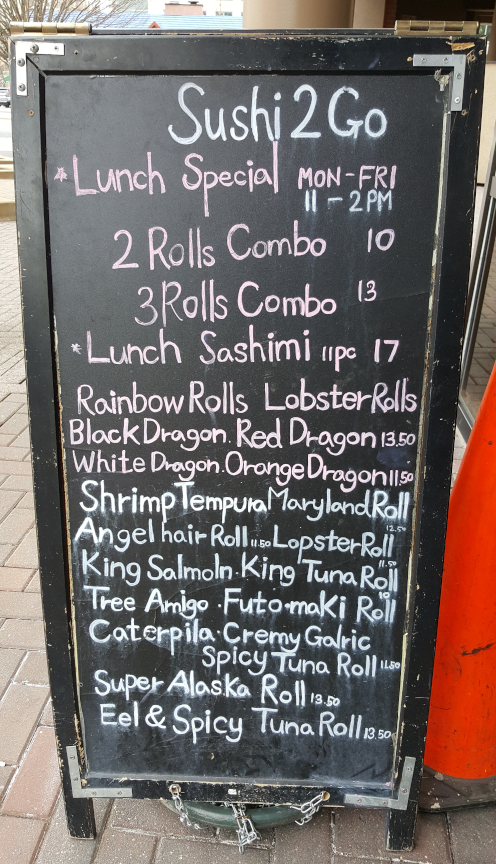 Sushi 2 Go
*Lunch Special MON-FRI
11-2PM
2 Rolls Combo 10
3 Rolls Combo 13
*Lunch Sashimi 11pc 17
Rainbow Rolls Lobster Rolls
Black Dragon. Red Dragon 13.50
White Dragon. Orange Dragon 11.50
Shrimp Tempura Maryland Roll
12.50
Angel hair Roll 11.50 Lopster Roll
11.50
King Salmoln·King Tuna Roll
10
Tree Amigo·Futo-maki Roll
Caterpila·Cremy Galric
Spicy Tuna Roll 11.50
Super Alaska Roll 13.50
Eel & Spicy Tuna Roll 13.50